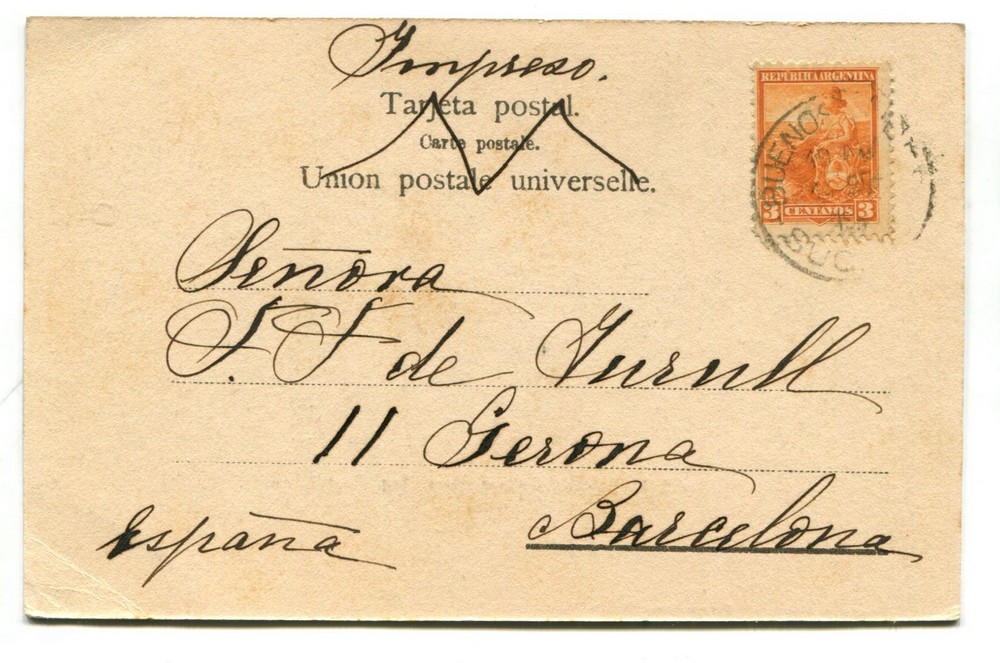 Impreso.
Tarjeta postal.
Carte postale.
Union postale universelle.
REPUBLICA ARGENTINA
3 CENTAVOS 3
BUENOS
Señora
F. F de Turull
11 Gerona
Barcelona
España